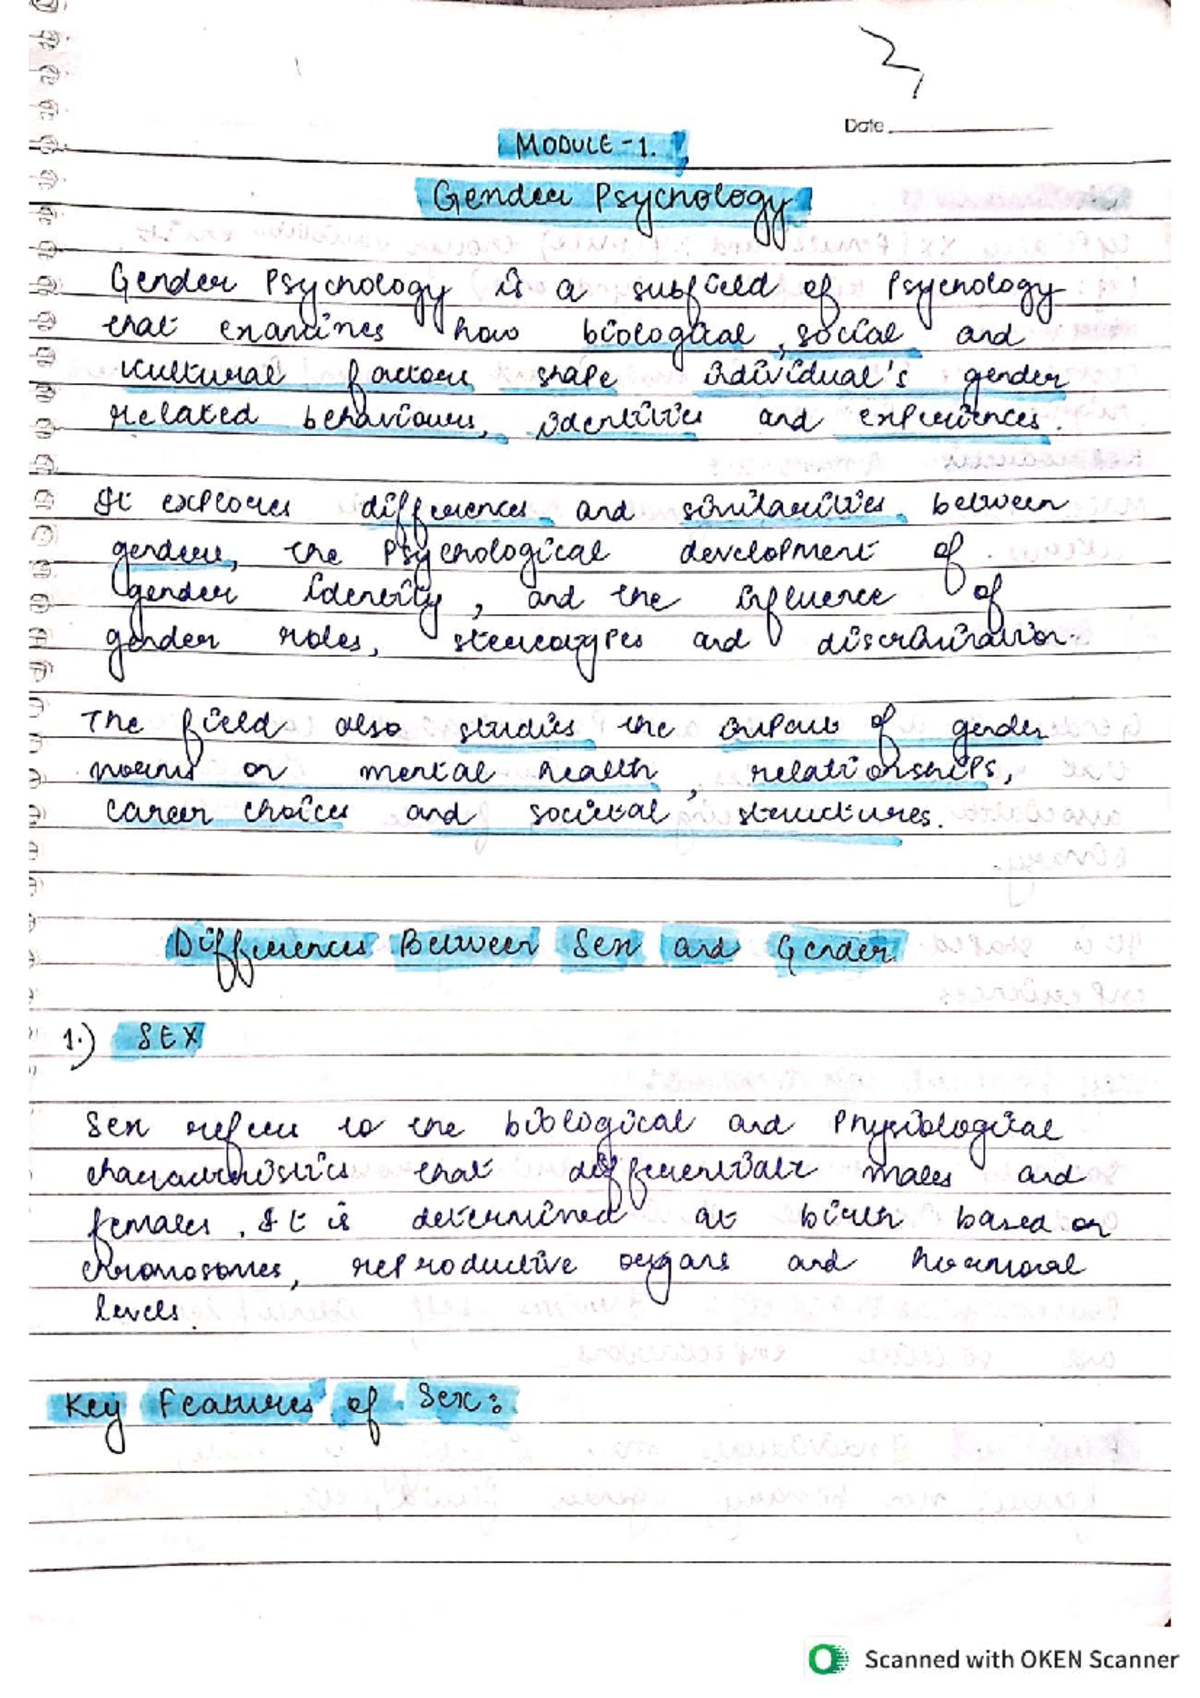 Date
MODULE - 1.
Gender Psychology
Gender Psychology is a subfield of Psychology
that examines how biological, social and
cultural factors shape individual's gender
related behaviours, identities and experiences.
It explores differences and similarities between
genders, the Psychological development of
gender identity, and the influence of
gender roles, stereotypes and discrimination.
The field also studies the impact of gender
norms on mental health, relationships,
career choices and societal structures.
Differences Between Sex and Gender
1.) SEX
Sex refers to the biological and Physiological
characteristics that differentiate males and
females. It is determined at birth based on
chromosomes, reproductive organs and hormonal
levels.
Key Features of Sex:
Scanned with OKEN Scanner